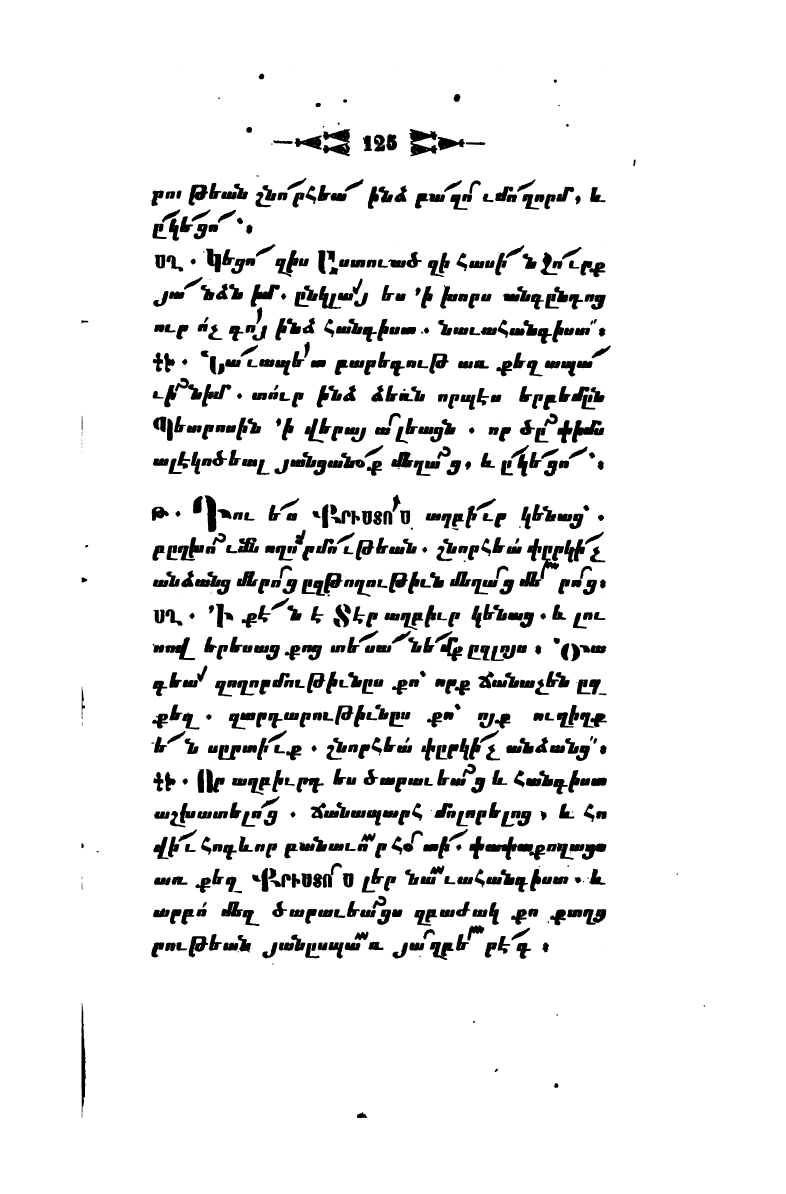 125
րու թեան շնո՛րհեա՛ ինձ բա՛զո՛ւմո՛ղորմ, և
ը՛կե՛ցո՛՝։
ՍՂ. Կեցո՛ զիս Աստուած զի հասի՛ն ջո՛ւրք
յա՛նձն իմ. ընկլա՛յ ես ՚ի խորս անդընդոց
ուր ո՛չ գո՛յ ինձ հանգիստ. նաւահանգիստ՝։
ՓԻ. Նա՛ւապե՛տ բարեգութ առ քեզ ապա՛
ւի՛նիմ. տո՛ւր ինձ ձեռն որպէս երբեմըն
Պետրոսին ՚ի վերայ ա՛լեացն. որ ծը՛փիմս
ալէկոծեալ յանցանօ՛ք մեղա՛ց, և ը՛կե՛ցո՛՝։
Թ. Դու ե՛ս ՔՐԻՍՏՈ՛Ս աղբի՛ւր կենաց՝.
բըղխո՛ւմն ողո՛րմո՛ւթեան. շնորհեա՛ փըրկի՛չ
անձանց մերո՛ց ըզթողութիւն մեղա՛ց մե՛րո՛ց։
ՍՂ. ՚Ի քէ՛ն է Տէր աղբիւր կենաց. և լու
սով երեսաց քոց տե՛սա՛նե՛մք ըզլոյս։ Ծա
գեա՛ զողորմութիւնըս քո՝ որք ճանաչեն ըզ
քեզ. զարդարութիւնըս քո՝ ոյք ուղիղք
ե՛ն սըրտի՛ւք. շնորհեա՛ փըրկի՛չ անձանց՝։
ՓԻ. Որ աղբիւրդ ես ծարաւեա՛ց և հանգիստ
աշխատելո՛ց. ճանապարհ մոլորելոց, և հո
վի՛ւ հոգևոր բանաւո՛ր հօ՛տի՛. փափաքողացս
առ քեզ ՔՐԻՍՏՈ՛Ս լեր նա՛ւահանգիստ. և
արբո՛ մեզ ծարաւեա՛ցս զբաժակ քո քաղց
րութեան յանըսպա՛ռ յա՛ղբե՛րէ՛դ։